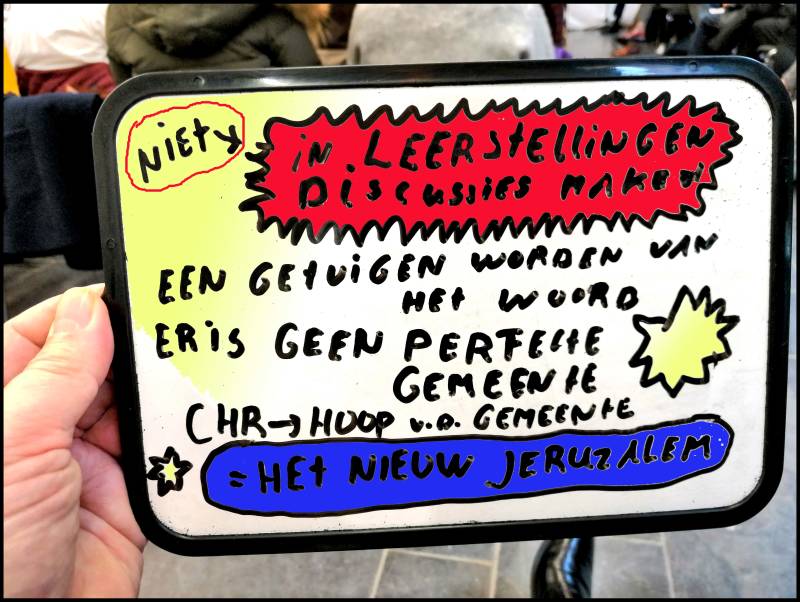 NIET
iN LEERSTELLINGEN
DiSCUSSIES MAKEN
EEN GETUIGEN WORDEN VAN
HET WOORD
ER iS GEEN PERFECTE
GEMEENTE
CHR → HOOP v.d. GEMEENTE
= HET NIEUW JERUZALEM